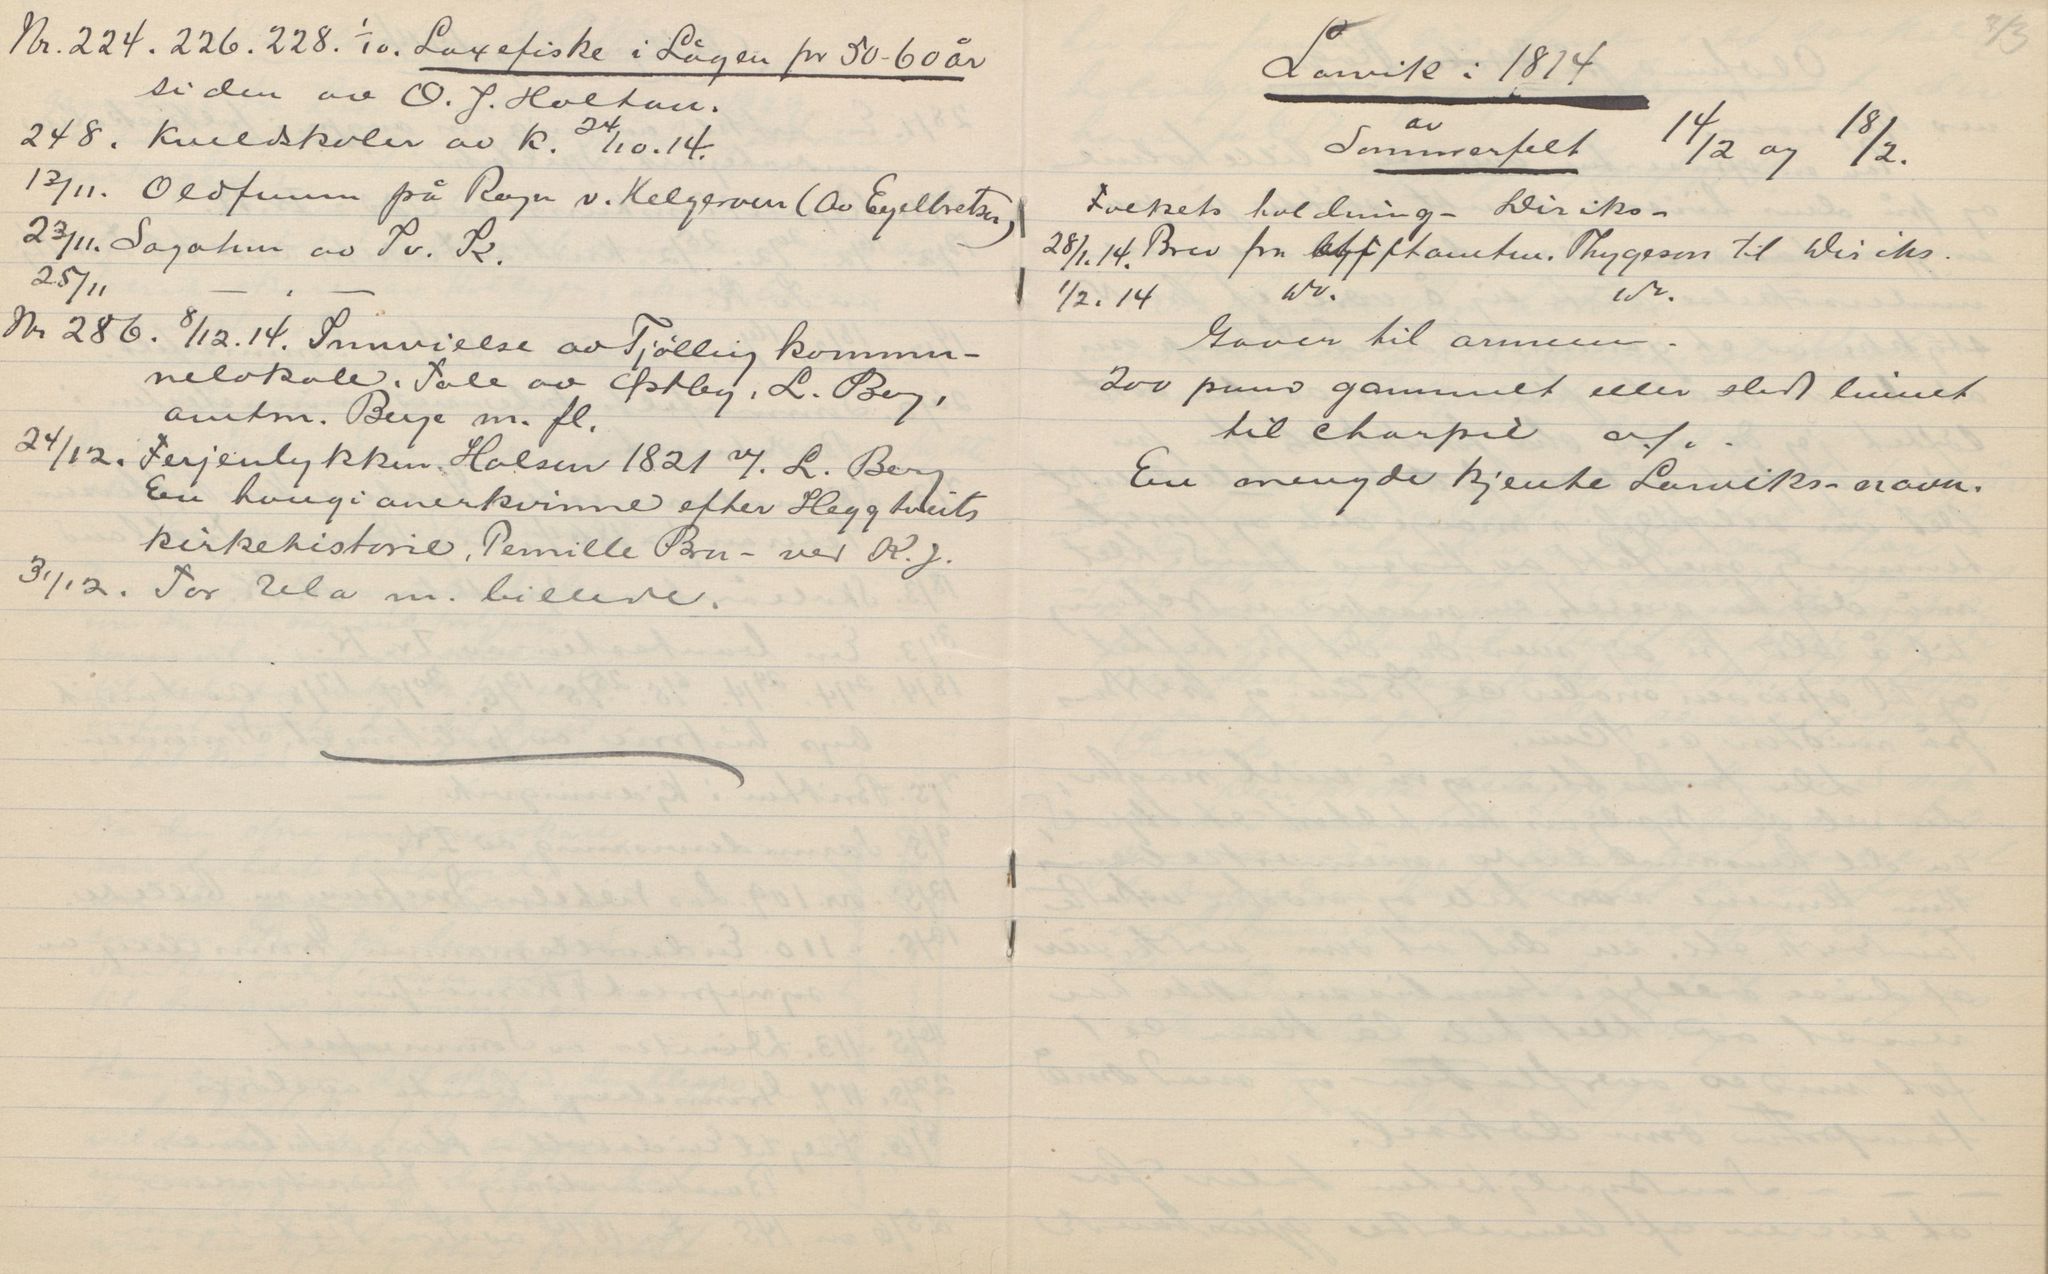 Nr. 224. 226. 228. 1/10. Laxefiske i Lågen for 50-60 år
siden av O. J. Holtan.
248. Kveldskoler av K. 24/10.14.
12/11. Oldfunn på Røysa v. Helgeroen (av Egelbretsen)
23/11. Sagatun av Sv. K.
25/11 — " —
Nr 286. 8/12.14. Innvielse av Tjølling kommu-
nelokale. Tale av Østby, L. Berg,
amtm. Berge m. fl.
24/12. Ferjeulykken Halsen 1821 v/. L. Berg
En haugianerkvinne efter Heggtveits
kirkehistorie, Pernille Bru - ved K. J.
31/12. Tor Ula m. billede.
2/3
Larvik i 1814
av
Sommerfelt 14/2 og 18/2.
Folkets holdning - Wiriks -
28/1.14. Brev fra stiftamtm. Thygeson til Wiriks.
1/2. 14 do. do.
Gaver til armeen.
200 pund gammelt eller slidt linnet
til charpie o.s.v.
En mengde kjente Larviks-navn.